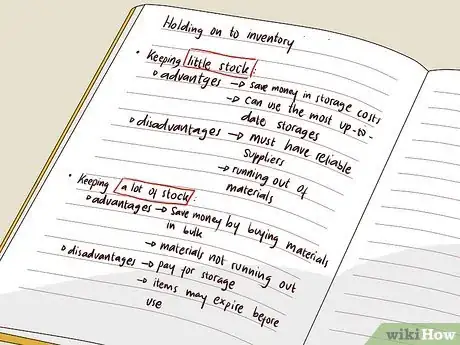 Holding on to inventory
• Keeping little stock:
o advantges → save money in storage costs
→ can use the most up-to-
date storages
o disadvantages → must have reliable
suppliers
→ running out of
materials
• Keeping a lot of stock:
o advantages → save money by buying materials
in bulk
→ materials not running out
o disadvantages → pay for storage
→ items may expire before
use
wikiHow